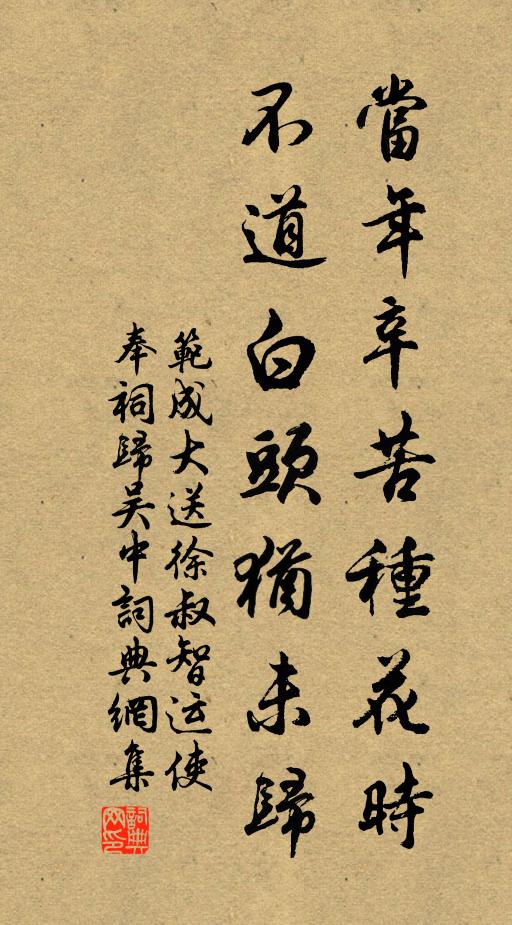 當年辛苦種花時
不道白頭猶未歸
範成大送徐叔智运使
奉祠歸吴中詞典網集
詞典网印